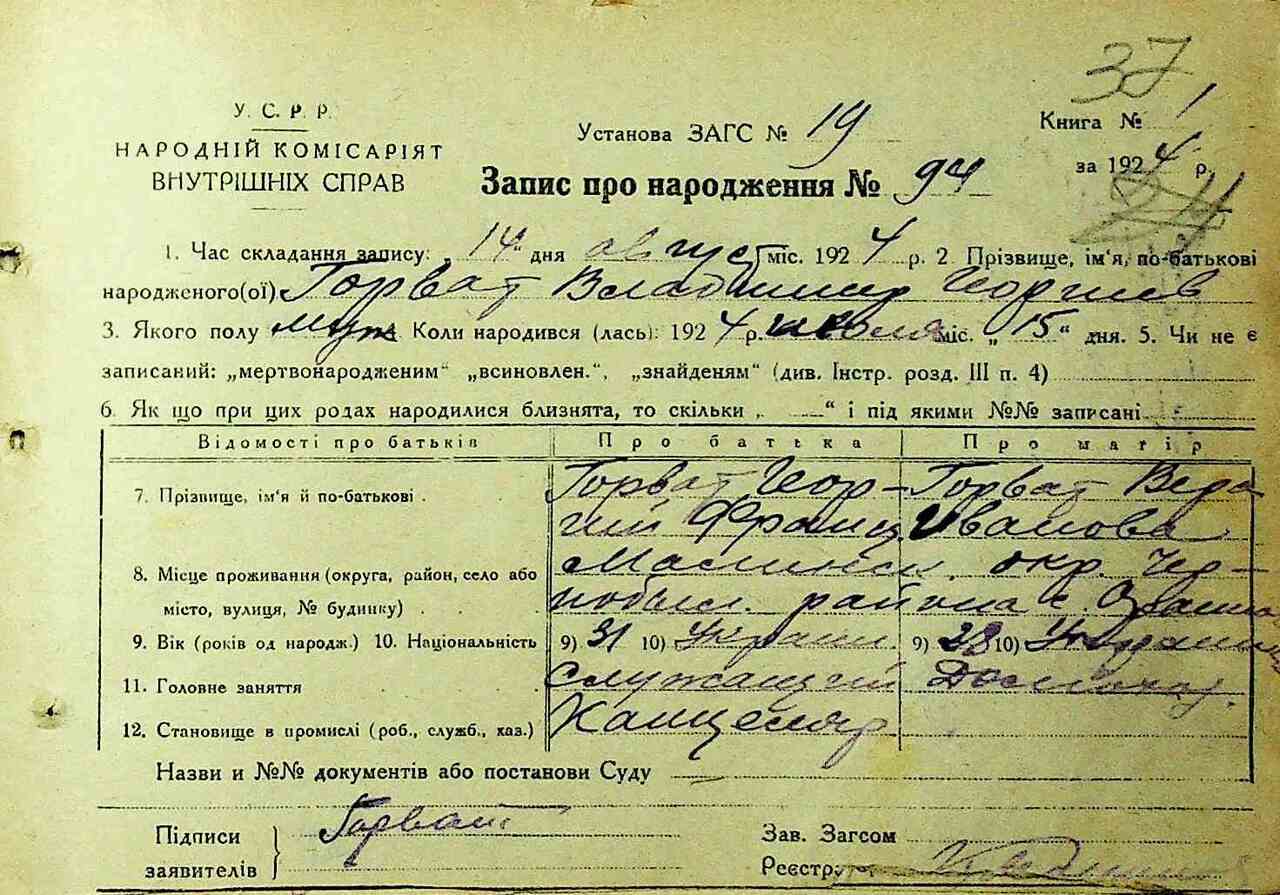 37
У. С. Р. Р.
НАРОДНІЙ КОМІСАРІЯТ
ВНУТРІШНІХ СПРАВ
Установа ЗАГС № 19
Книга № 1
за 1924 р.
24
Запис про народження № 94
1. Час складання запису: „14" дня август міс. 1924 р. 2 Прізвище, ім'я, по-батькові
народженого(ої) Горват Владимир Георгиев
3. Якого полу муж 4. Коли народився (лась): 1924 р. июля міс. „15" дня. 5. Чи не є
записаний: „мертвонародженим" „всиновлен.", „знайденям" (див. Інстр. розд. III п. 4)
6. Як що при цих родах народилися близнята, то скільки „ " і під якими №№ записані
Відомості про батьків Про батька Про матір
7. Прізвище, ім'я й по-батькові Горват Геор- Горват Вера
гий Франц. Иванова
8. Місце проживання (округа, район, село або Малинск. окр. Чер-
місто, вулиця, № будинку) нобыл. района с.
9. Вік (років од народж.) 10. Національність 9) 31 10) Украин. 9) 28 10) Украин
11. Головне заняття Служащий Домохоз.
12. Становище в промислі (роб., служб., хаз.) Канцеляр
Назви и №№ документів або постанови Суду
Підписи
заявителів
Горват
Зав. Загсом
Реєстр.